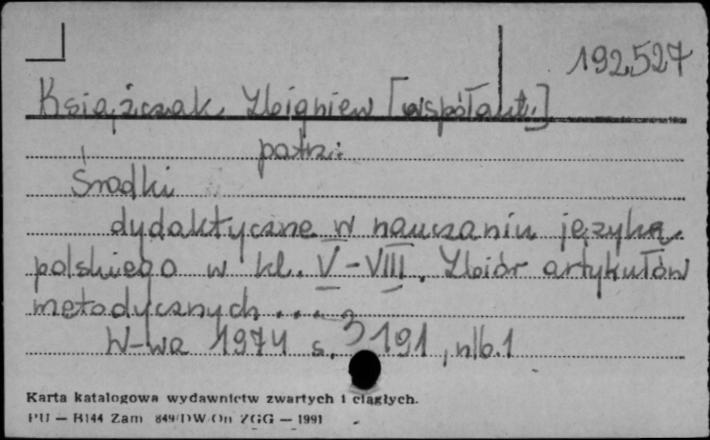 192527
Książczak Zbigniew [współaut.]
patrz:
Środki
dydaktyczne w nauczaniu języka
polskiego w kl. V-VIII. Zbiór artykułów
metodycznych...
W-wa 1974 s. 191, nlb.1
Karta katalogowa wydawnictw zwartych i ciągłych.
PU — B144 Zam 849/DW/On ZGG — 1991